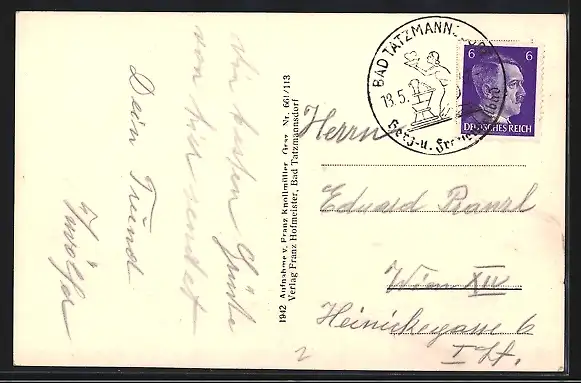 Die besten Grüße
von hier sendet
Dein Freund
1942 Aufnahme v. Franz Knollmüller, Graz Nr. 661/113
Verlag Franz Hofmeister, Bad Tatzmannsdorf
BAD TATZMANNSDORF
13.5.
Herz- u. Frauenbad
6 6
DEUTSCHES REICH
Herrn
Eduard
Wien XIV
Heinickegasse 6
I. St.
2